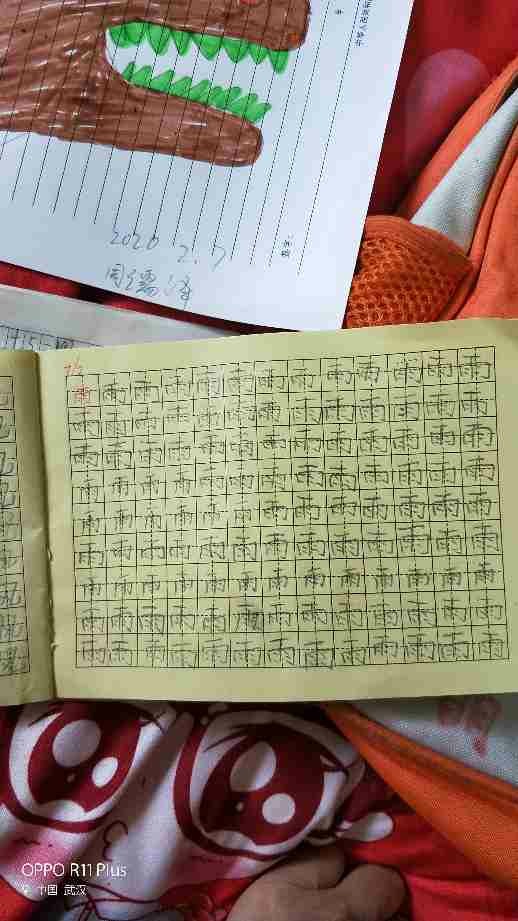 2020 2.7
周
7/2
雨雨雨雨雨雨雨雨雨雨雨雨雨
雨雨雨雨雨雨雨雨雨雨雨雨雨
雨雨雨雨雨雨雨雨雨雨雨雨雨
雨雨雨雨雨雨雨雨雨雨雨雨雨
雨雨雨雨雨雨雨雨雨雨雨雨雨
雨雨雨雨雨雨雨雨雨雨雨雨雨
雨雨雨雨雨雨雨雨雨雨雨雨雨
雨雨雨雨雨雨雨雨雨雨雨雨雨
雨雨雨雨雨雨雨雨雨雨雨雨雨
OPPO R11 Plus
中国 武汉